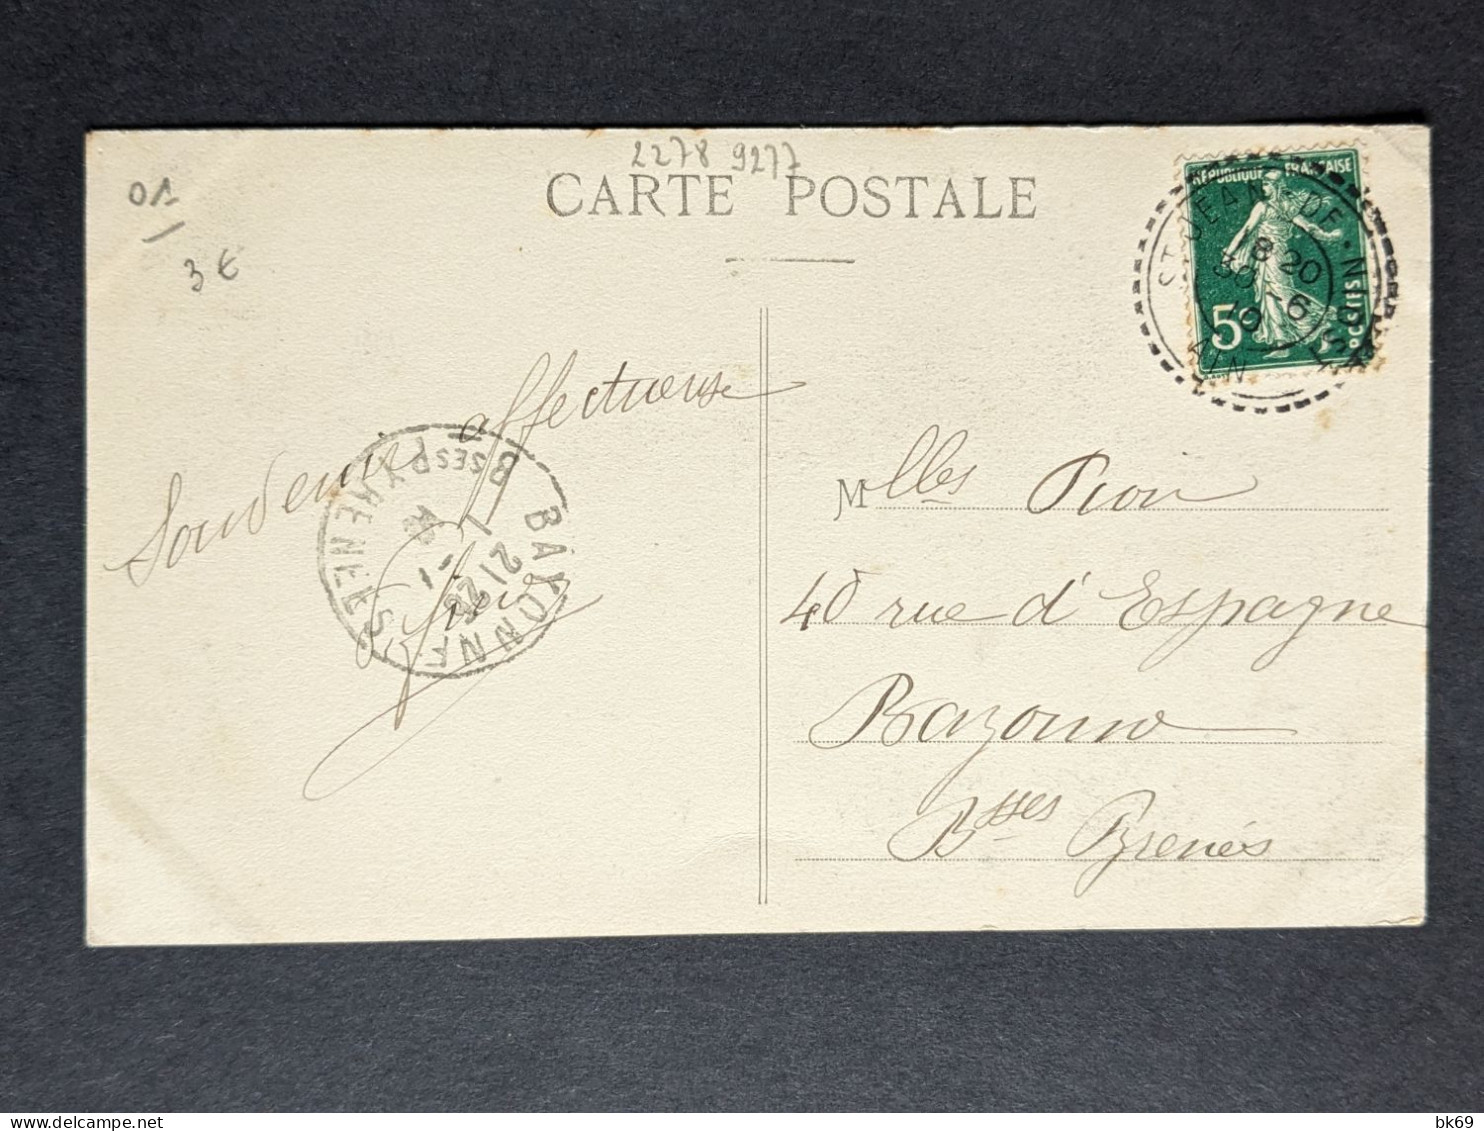 2278 9277
01
3€
CARTE POSTALE
RÉPUBLIQUE FRANÇAISE
5c
POSTES
ST JEAN DE
8 20
30 - 6
10
AIN
Souvenir affectueuse
BAYONNE
BSES PYRENEES
21 25
Mlles Pion
40 rue d'Espagne
Bayonne
Bsses Pyrenés
bk69